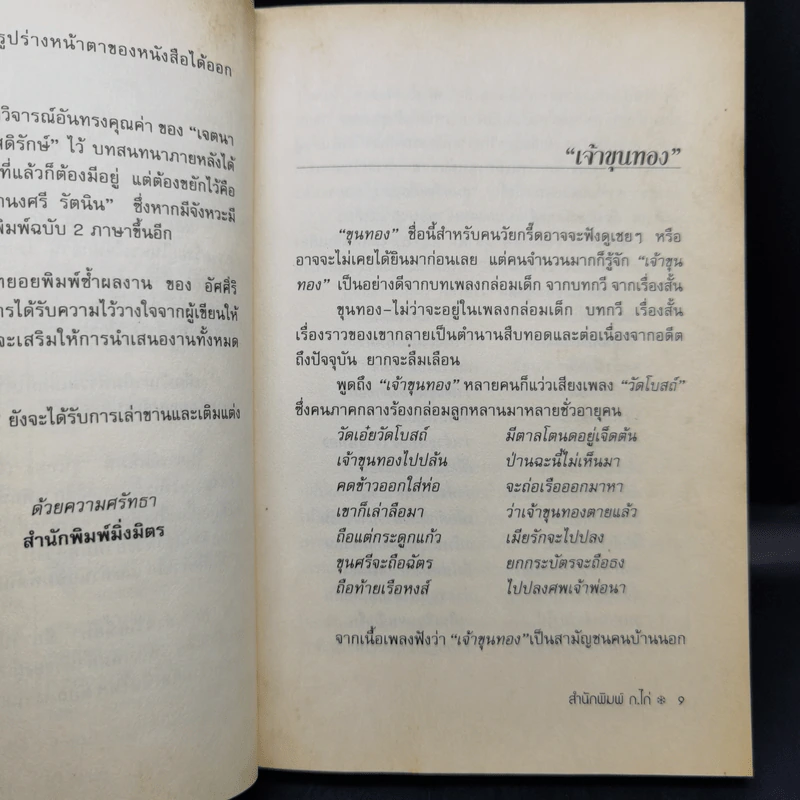 รูปร่างหน้าตาของหนังสือได้ออก
วิจารณ์อันทรงคุณค่า ของ “เจตนา
ไว้ บทสนทนาภายหลังได้
ที่แล้วก็ต้องมีอยู่ แต่ต้องขยักไว้คือ
รัตนิน” ซึ่งหากมีจังหวะมี
พิมพ์ฉบับ 2 ภาษาขึ้นอีก
ทยอยพิมพ์ซ้ำผลงาน ของ อัศศิริ
การได้รับความไว้วางใจจากผู้เขียนให้
จะเสริมให้การนำเสนองานทั้งหมด
ยังจะได้รับการเล่าขานและเติมแต่ง
ด้วยความศรัทธา
สำนักพิมพ์มิ่งมิตร
“เจ้าขุนทอง”
“ขุนทอง” ชื่อนี้สำหรับคนวัยกรี๊ดอาจจะฟังดูเชยๆ หรือ
อาจจะไม่เคยได้ยินมาก่อนเลย แต่คนจำนวนมากก็รู้จัก “เจ้าขุน
ทอง” เป็นอย่างดีจากบทเพลงกล่อมเด็ก จากบทกวี จากเรื่องสั้น
ขุนทอง-ไม่ว่าจะอยู่ในเพลงกล่อมเด็ก บทกวี เรื่องสั้น
เรื่องราวของเขากลายเป็นตำนานสืบทอดและต่อเนื่องจากอดีต
ถึงปัจจุบัน ยากจะลืมเลือน
พูดถึง “เจ้าขุนทอง” หลายคนก็แว่วเสียงเพลง “วัดโบสถ์”
ซึ่งคนภาคกลางร้องกล่อมลูกหลานมาหลายชั่วอายุคน
วัดเอ๋ยวัดโบสถ์ มีตาลโตนดอยู่เจ็ดต้น
เจ้าขุนทองไปปล้น ป่านฉะนี้ไม่เห็นมา
คดข้าวออกใส่ห่อ จะถ่อเรือออกมาหา
เขาก็เล่าลือมา ว่าเจ้าขุนทองตายแล้ว
ถือแต่กระดูกแก้ว เมียรักจะไปปลง
ขุนศรีจะถือฉัตร ยกกระบัตรจะถือธง
ถือท้ายเรือหงส์ ไปปลงศพเจ้าพ่อนา
จากเนื้อเพลงฟังว่า “เจ้าขุนทอง”เป็นสามัญชนคนบ้านนอก
สำนักพิมพ์ ก.ไก่ ❄ ๑